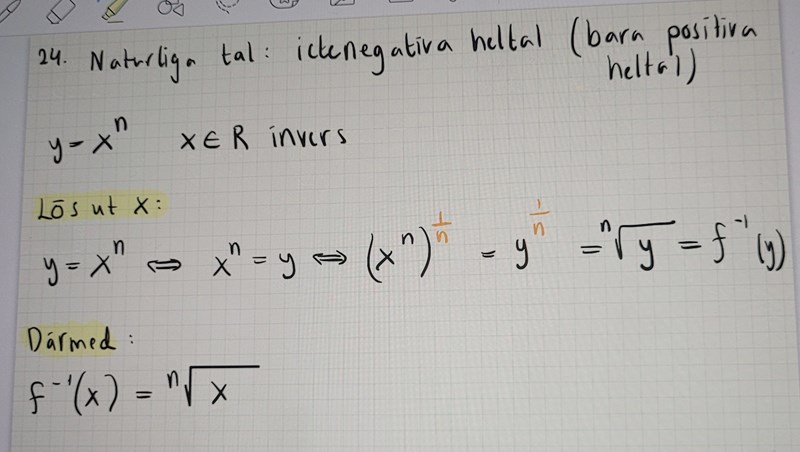 24. Naturliga tal: ickenegativa heltal (bara positiva
heltal)
y = xⁿ x ∈ R invers
Lös ut x:
y = xⁿ ⇔ xⁿ = y ⇔ (xⁿ)^(1/n) = y^(1/n) = ⁿ√y = f⁻¹(y)
Därmed:
f⁻¹(x) = ⁿ√x